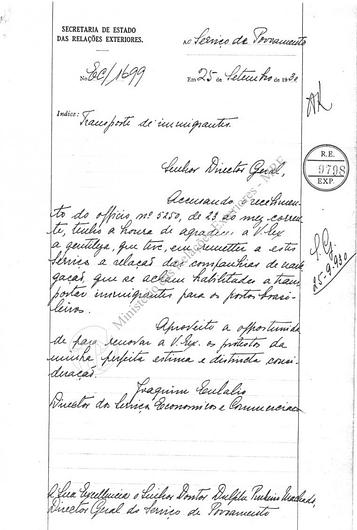 SECRETARIA DE ESTADO
DAS RELAÇÕES EXTERIORES.
Ao Serviço de Povoamento
No EC/1699
Em 25 de Setembro de 1930
Indice: Transporte de immigrantes.
Senhor Director Geral,
R.E.
9798
EXP.
Accusando o recebimen-
to do officio nº 5250, de 23 do mez corren-
te, tenho a honra de agradecer a V. Ex.
a gentileza, que teve, em remetter a este
Serviço a relação das companhias de nave-
gação, que se acham habilitadas a trans-
portar immigrantes para os portos brasi-
leiros.
25-9-930
Aproveito a opportunida-
de para renovar a V. Ex. os protestos da
minha perfeita estima e distincta consi-
deração.
Joaquim Eulalio
Director dos Serviços Economicos e Commerciaes
A Sua Excellencia o Senhor Doutor Dulphe Pinheiro Machado,
Director Geral do Serviço de Povoamento